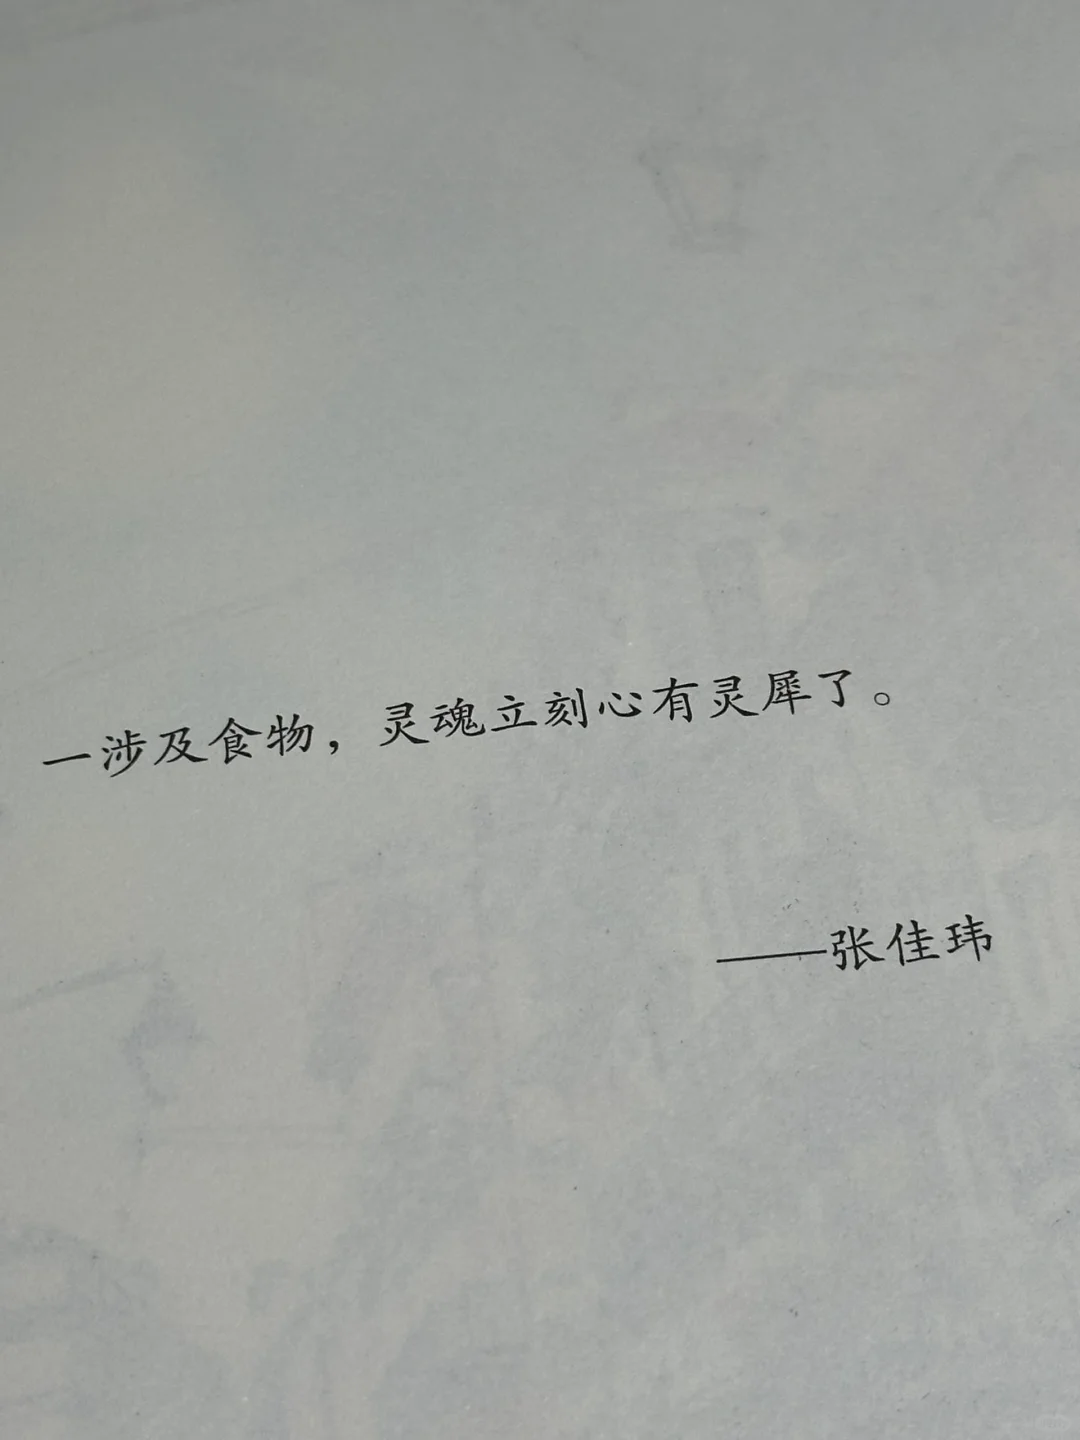 一涉及食物，灵魂立刻心有灵犀了。
——张佳玮